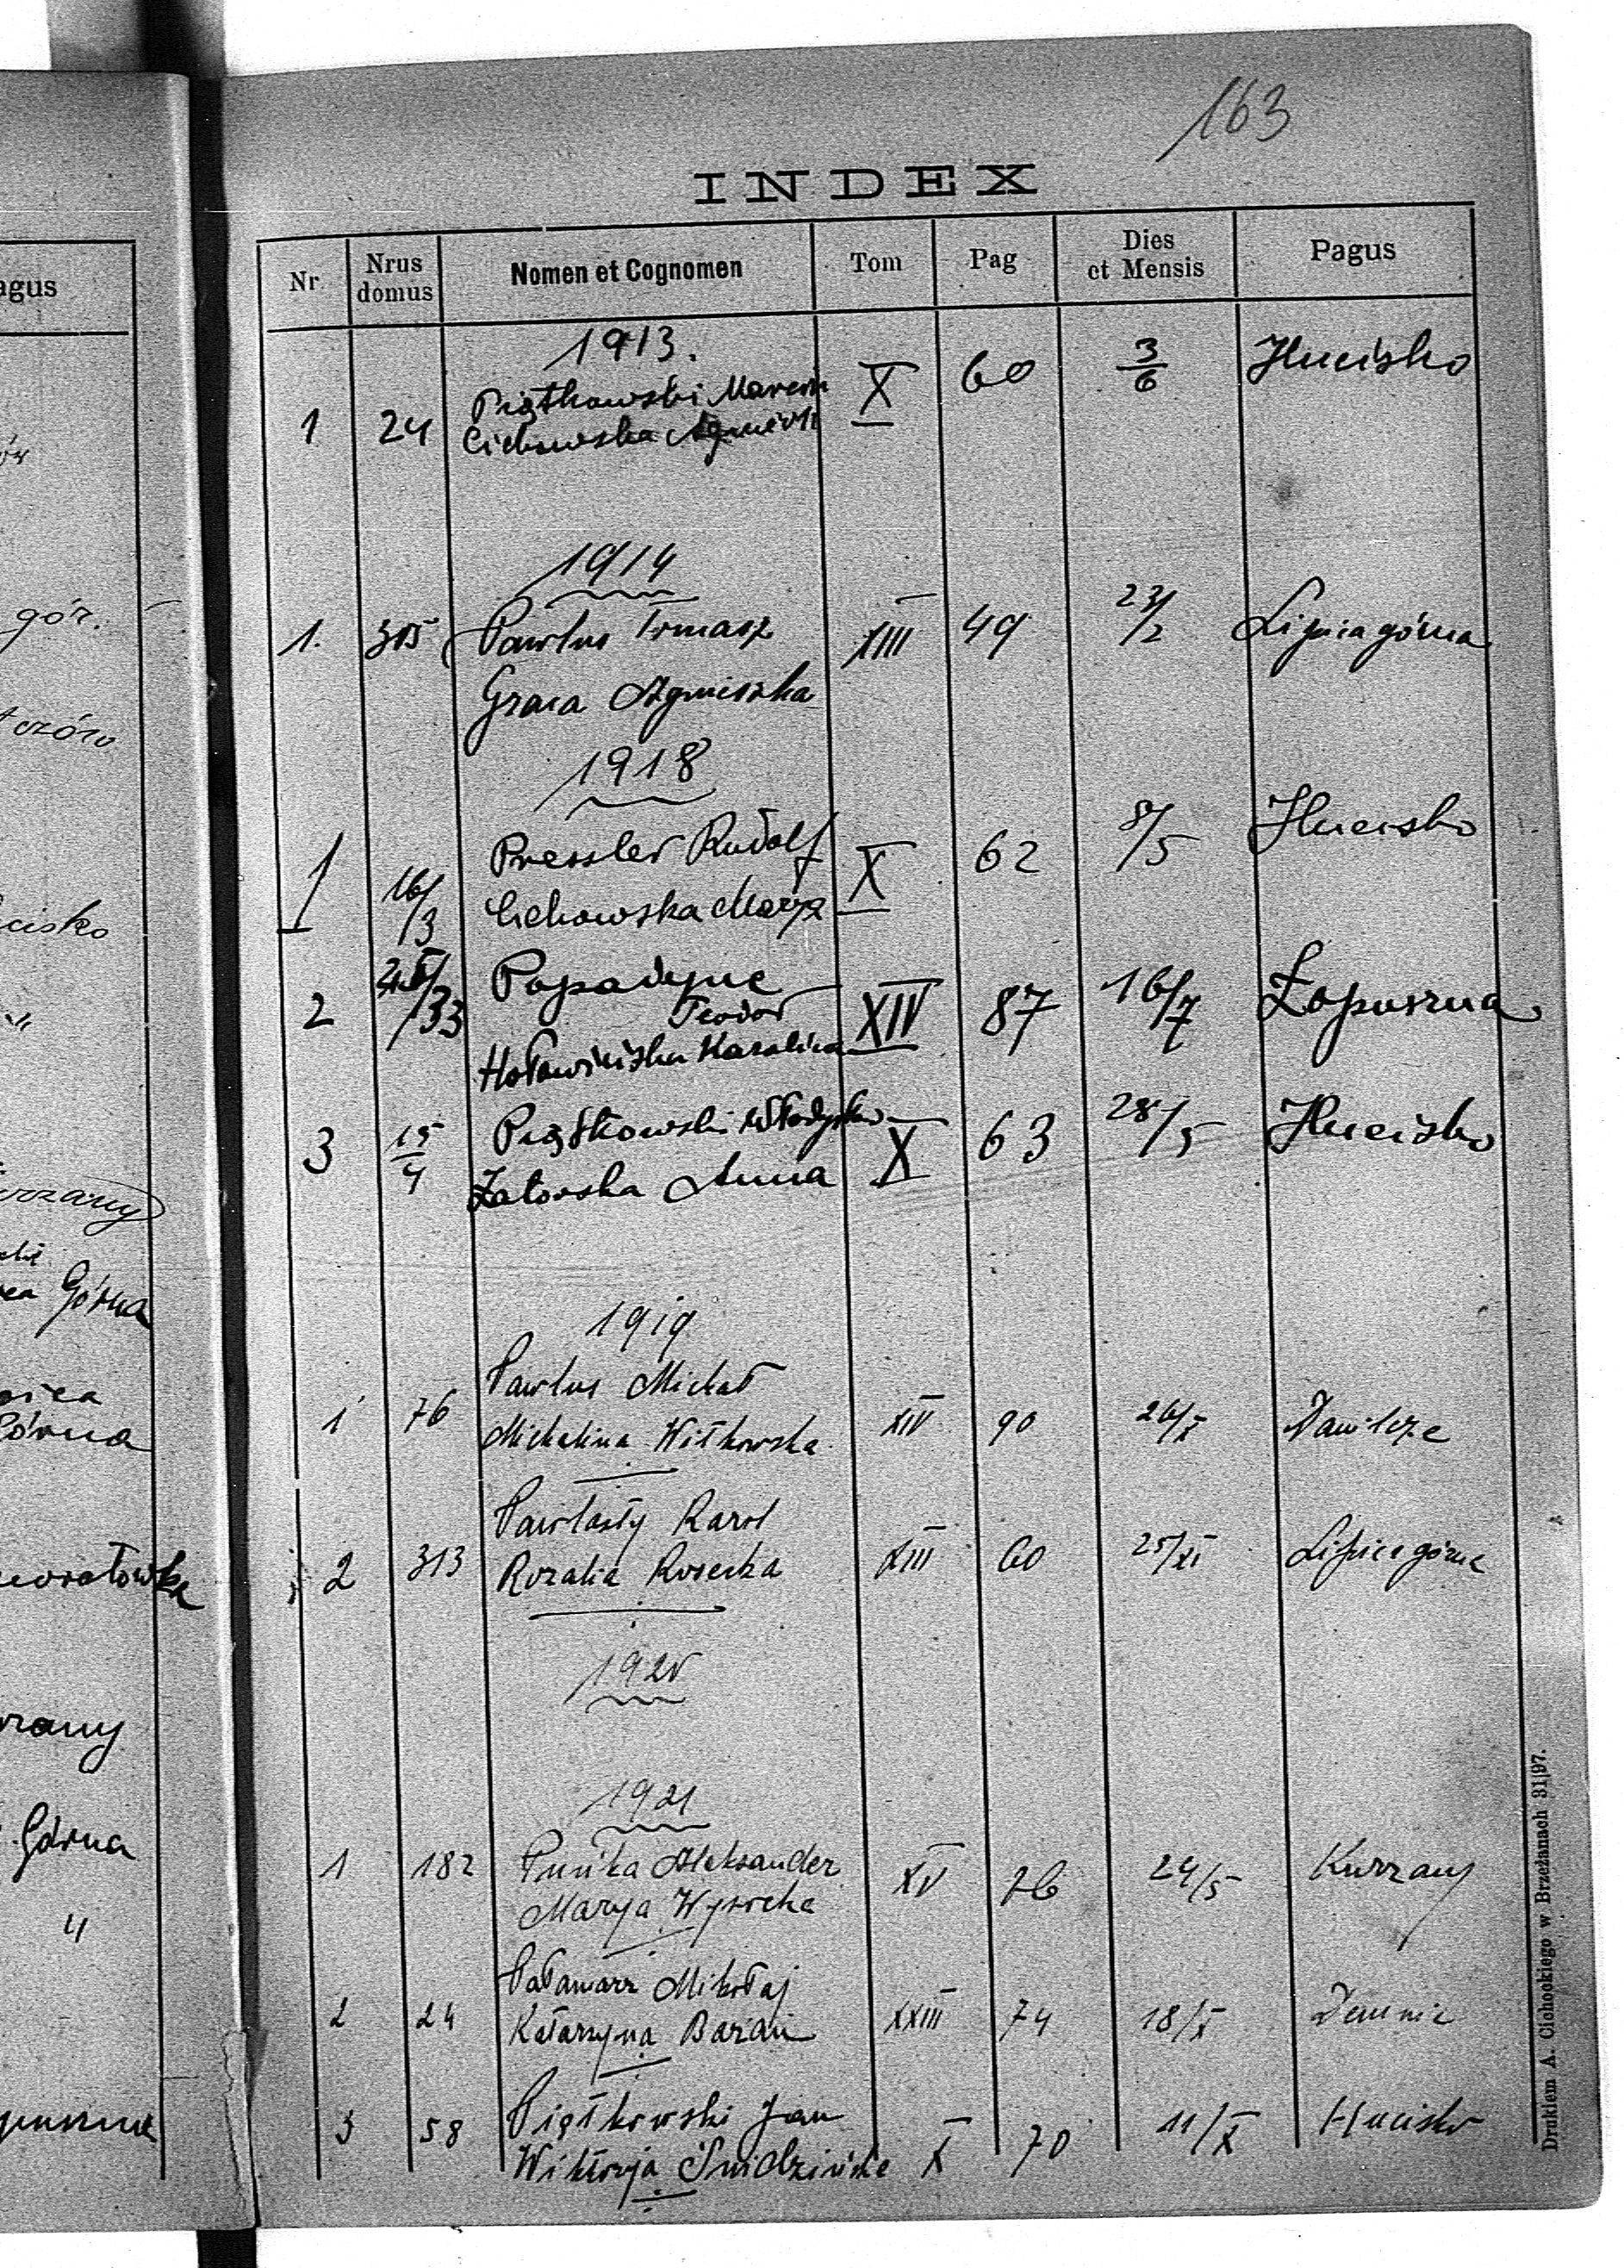 163
INDEX
Nr Nrus domus Nomen et Cognomen Tom Pag Dies et Mensis Pagus
agus
1913.
1 24 Piątkowski Marcin X 60 3/6 Hucisko
Cichowska
gór.
1914
1. 315 Pawlus Tomasz XIII 49 23/2 Lipica górna
Graca Agnieszka
1918
1 16/3 Pressler Rudolf X 62 8/5 Hucisko
Cichowska Marya
cisko
2 /33 Popadyne Teodor XIV 87 16/7 Łopuszna
Hołowińska Karolina
3 15/4 Piątkowski X 63 28/5 Hucisko
Zatorska Anna
Górna
1919
1 76 Pawlus Michał XIV 90 26/X Dawilcze
Michalina Witkowska
2 313 Pawłosty Karol XIII 60 25/XI Lipica górna
Rozalia Rosecka
1920
1921
1 182 Puńka Aleksander XV 76 24/5 Kurzany
Marya Wysocka
Górna
2 24 Pałamarz Mikołaj XXIII 74 18/X Demnia
Katarzyna Baran
3 58 Piątkowski Jan X 70 11/X Hucisko
Wiktorja Śnidzińska
Drukiem A. Cichockiego w Brzeżanach 31|97.